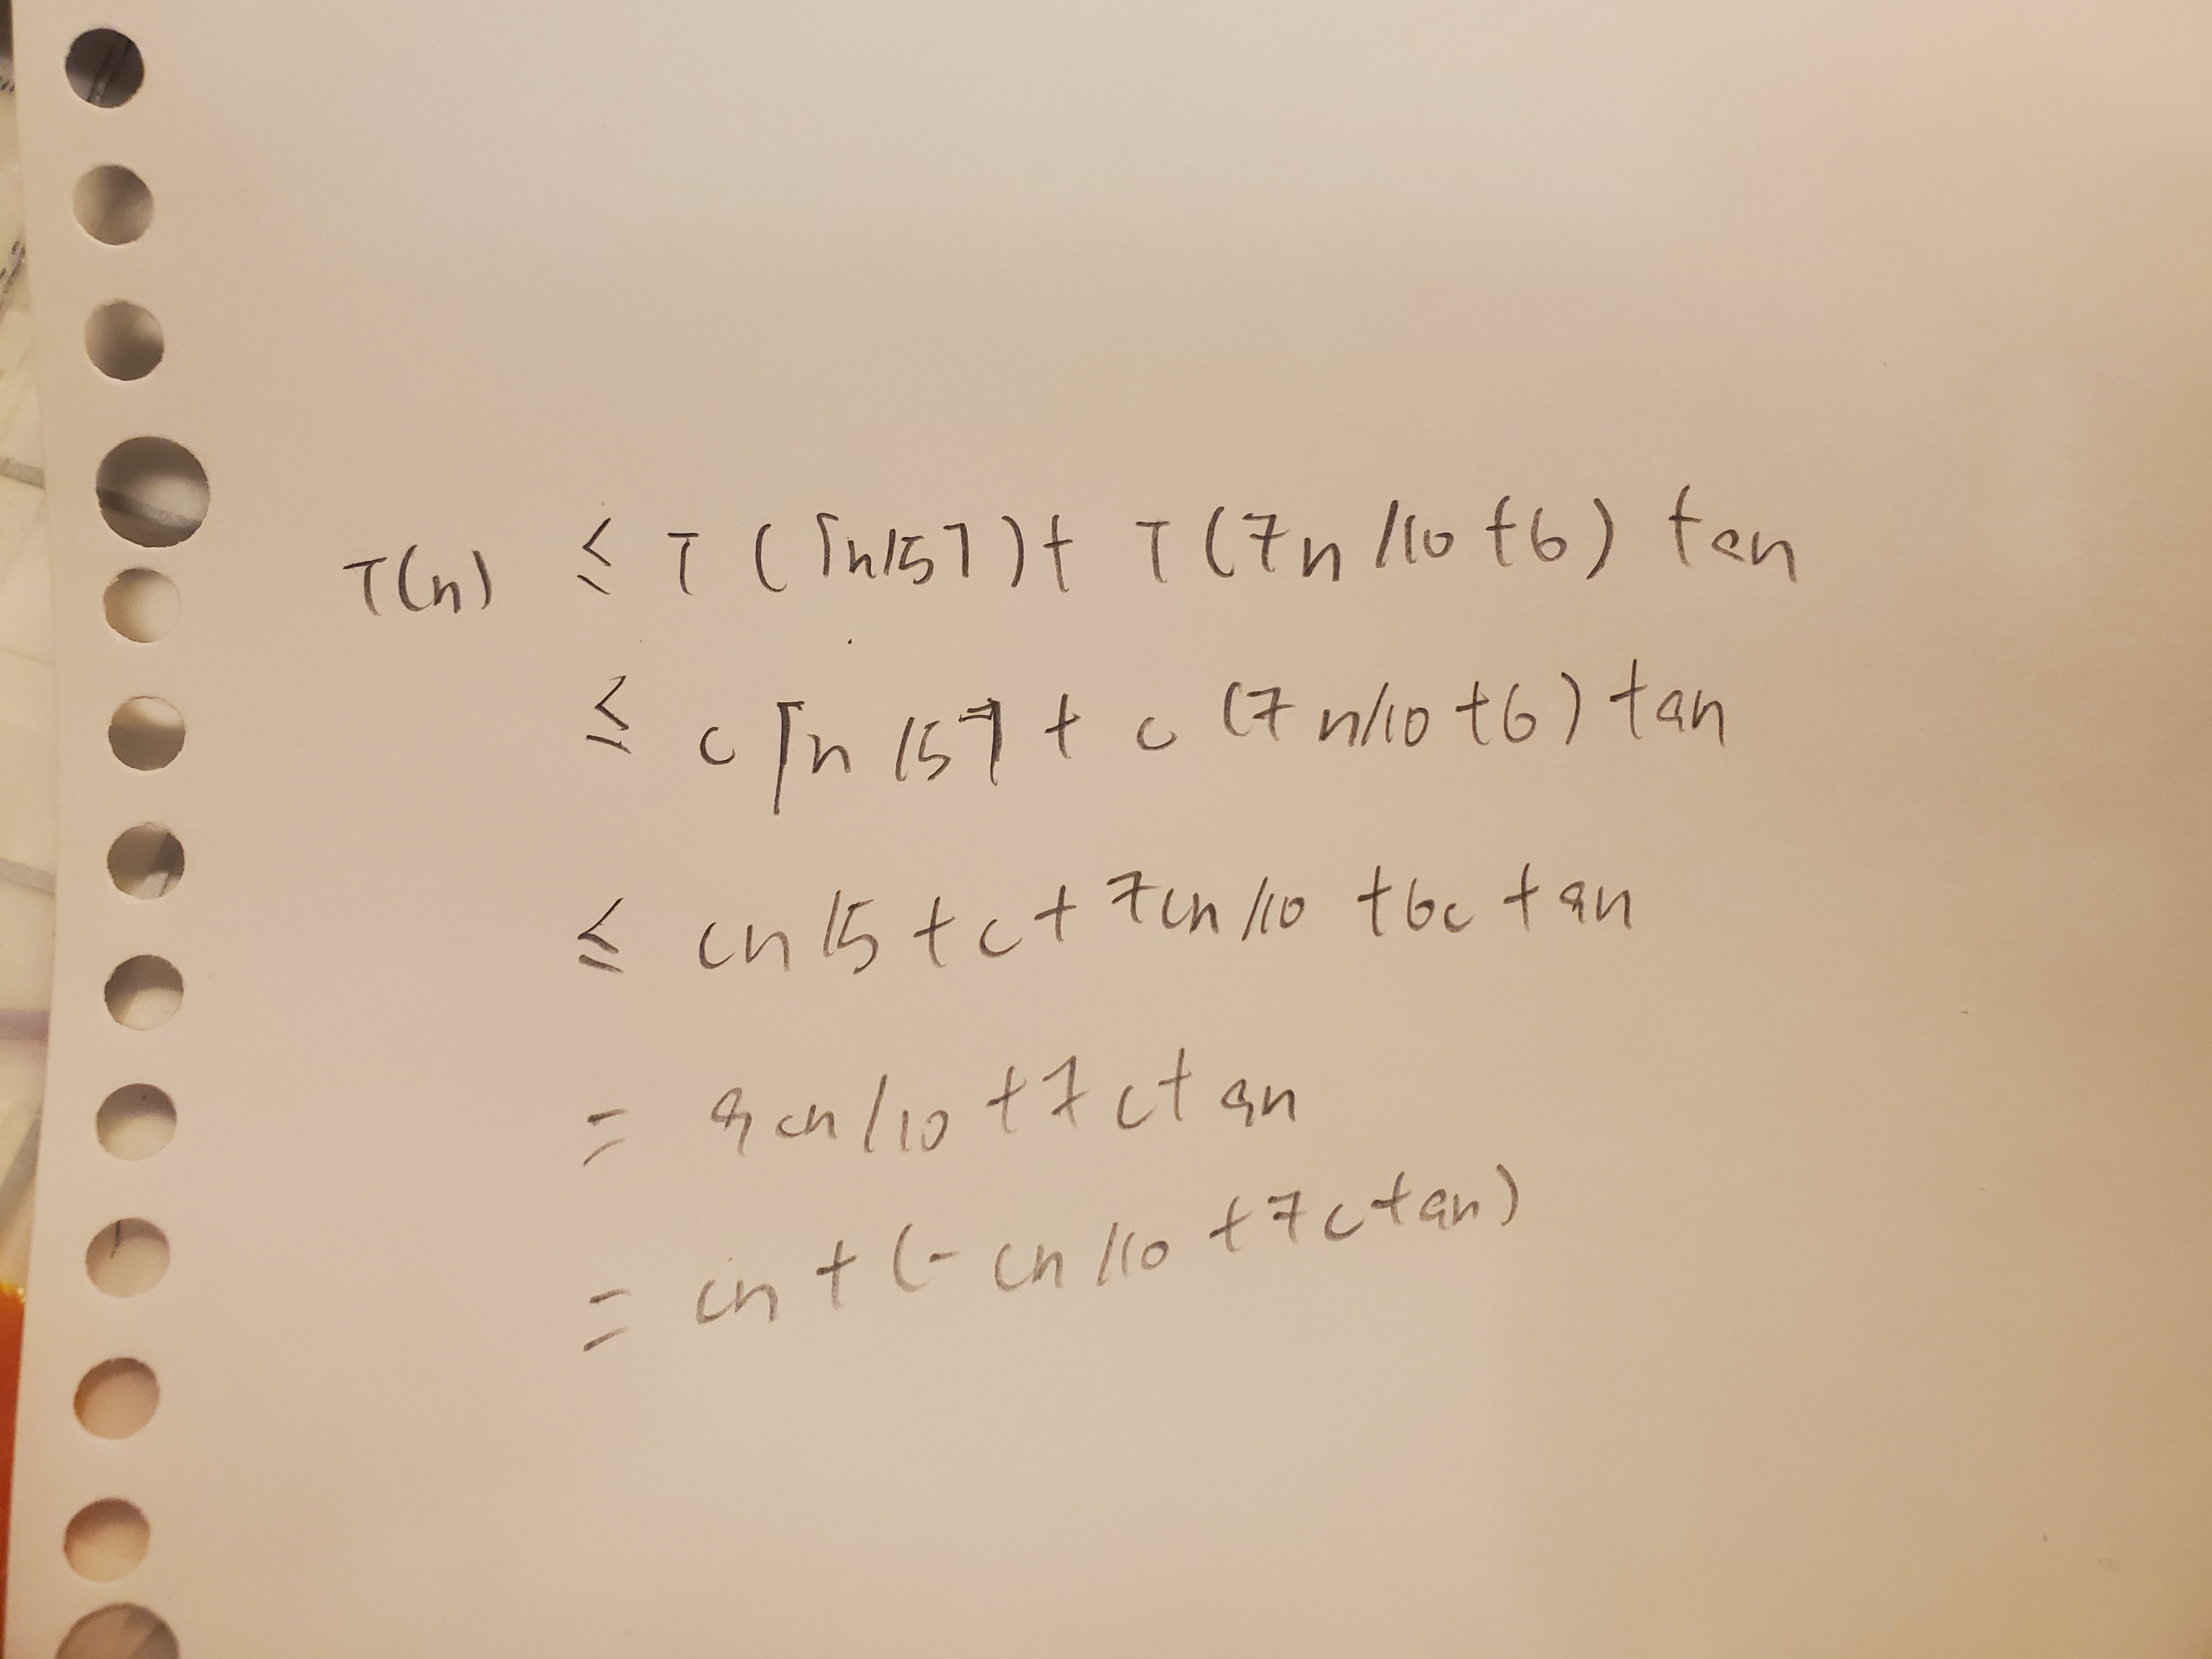 T(n) ≤ T(⌈n/5⌉) + T(7n/10+6) + an
≤ c⌈n/5⌉ + c(7n/10+6) + an
≤ cn/5 + c + 7cn/10 + 6c + an
= 9cn/10 + 7c + an
= cn + (-cn/10 + 7c + an)